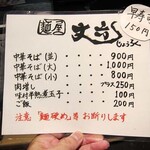 麺屋 丈六
じょうろく
早寿司
150円
中華そば(並) 900円
中華そば(大) 1,000円
中華そば(小) 800円
肉増し プラス250円
味付半熟煮玉子 100円
ご飯 200円
注意 「麺硬め」等お断りします